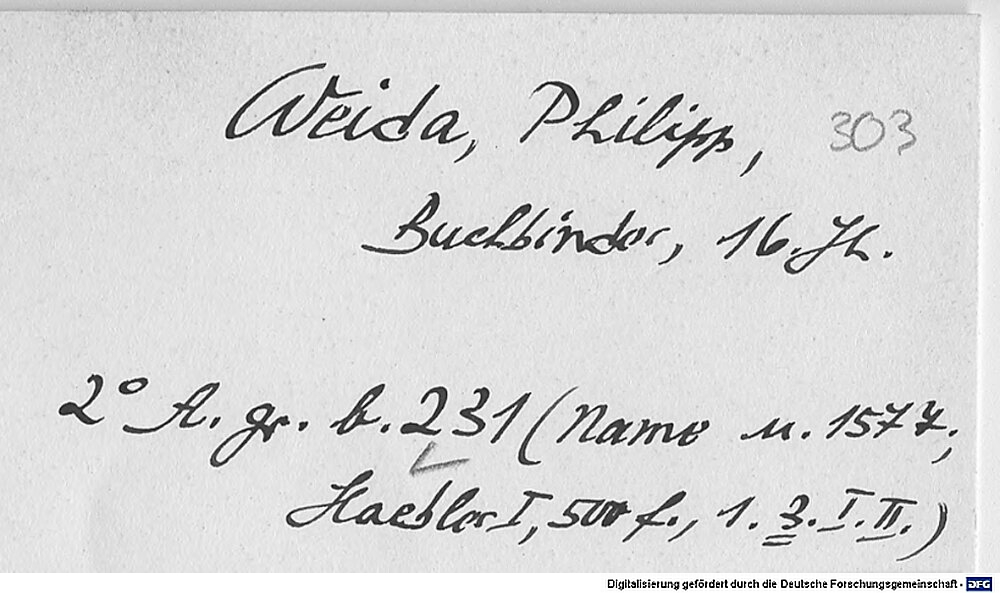 Weida, Philipp, 303
Buchbinder, 16. Jh.
2° A. gr. b. 231 (Name u. 1577;
Haebler I, 500 f., 1. 3. I. II.)
Digitalisierung gefördert durch die Deutsche Forschungsgemeinschaft - DFG